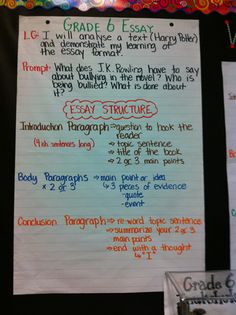 GRADE 6 ESSAY
LG: I will analyse a text (Harry Potter)
and demonstrate my learning of
the essay format.
Prompt - What does J.K. Rowling have to say
about bullying in the novel? Who is
being bullied? What is done about
it?
ESSAY STRUCTURE
Introduction Paragraph → question to hook the
reader
(4-5 sentences long) → topic sentence
→ title of the book
→ 2 or 3 main points
Body Paragraphs → main point or idea
x 2 or 3 ↳ 3 pieces of evidence
- quote
- event
Conclusion Paragraph → re word topic sentence
→ summarize your 2 or 3
main points
→ end with a thought
↳ "I"
Grade 6